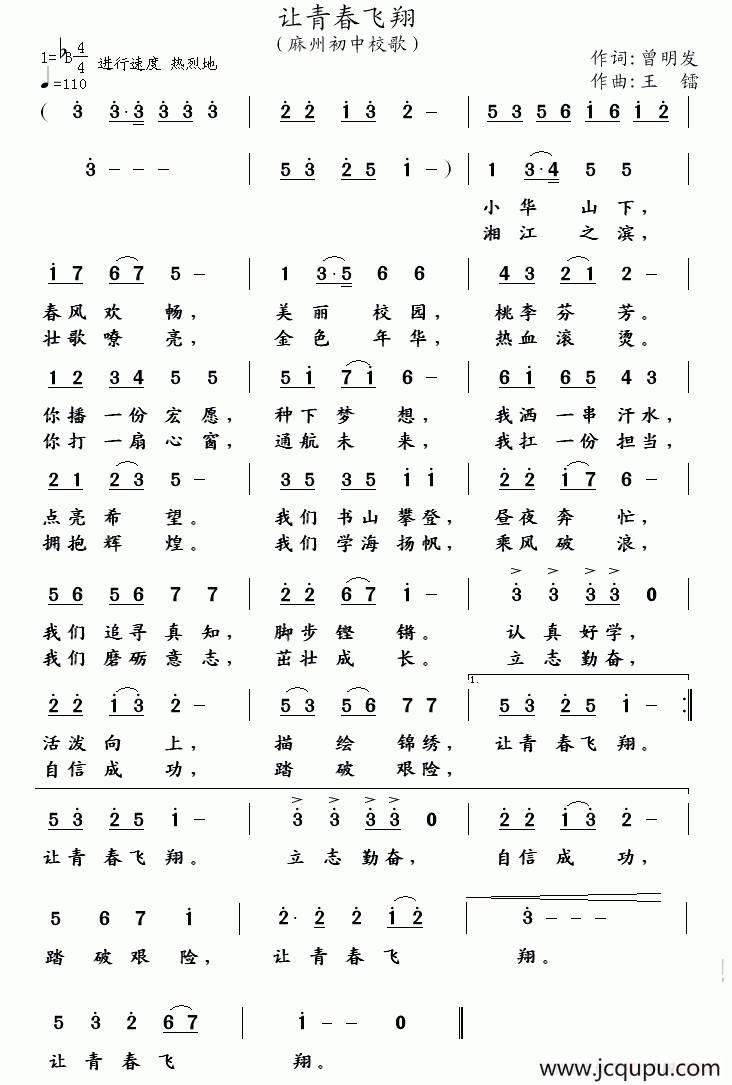 让青春飞翔
（麻州初中校歌）
1=♭B 4/4 进行速度 热烈地
♩=110
作词:曾明发
作曲:王 镭
( 3 3·3 3 3 3 | 2 2 1 3 2 – | 5 3 5 6 1 6 1 2
3 – – – | 5 3 2 5 1 – ) | 1 3·4 5 5
小华 山下，
湘江 之滨，
1 7 6 7 5 – | 1 3·5 6 6 | 4 3 2 1 2 –
春风欢 畅， 美丽 校园， 桃李芬 芳。
壮歌嘹 亮， 金色 年华， 热血滚 烫。
1 2 3 4 5 5 | 5 1 7 1 6 – | 6 1 6 5 4 3
你播一份宏愿， 种下梦 想， 我洒一串汗水，
你打一扇心窗， 通航未 来， 我扛一份担当，
2 1 2 3 5 – | 3 5 3 5 1 1 | 2 2 1 7 6 –
点亮希 望。 我们书山攀登， 昼夜奔 忙，
拥抱辉 煌。 我们学海扬帆， 乘风破 浪，
5 6 5 6 7 7 | 2 2 6 7 1 – | 3 3 3 3 0
我们追寻真知， 脚步铿 锵。 认真好学，
我们磨砺意志， 茁壮成 长。 立志勤奋，
1.
2 2 1 3 2 – | 5 3 5 6 7 7 | 5 3 2 5 1 – :||
活泼向 上， 描绘锦绣， 让青春飞翔。
自信成 功， 踏破艰险，
5 3 2 5 1 – | 3 3 3 3 0 | 2 2 1 3 2 –
让青春飞翔。 立志勤奋， 自信成 功，
5 6 7 1 | 2· 2 2 1 2 | 3 – – –
踏破艰险， 让青春飞 翔。
5 3 2 6 7 | 1 – – 0 ||
让青春飞 翔。
www.jcqupu.com